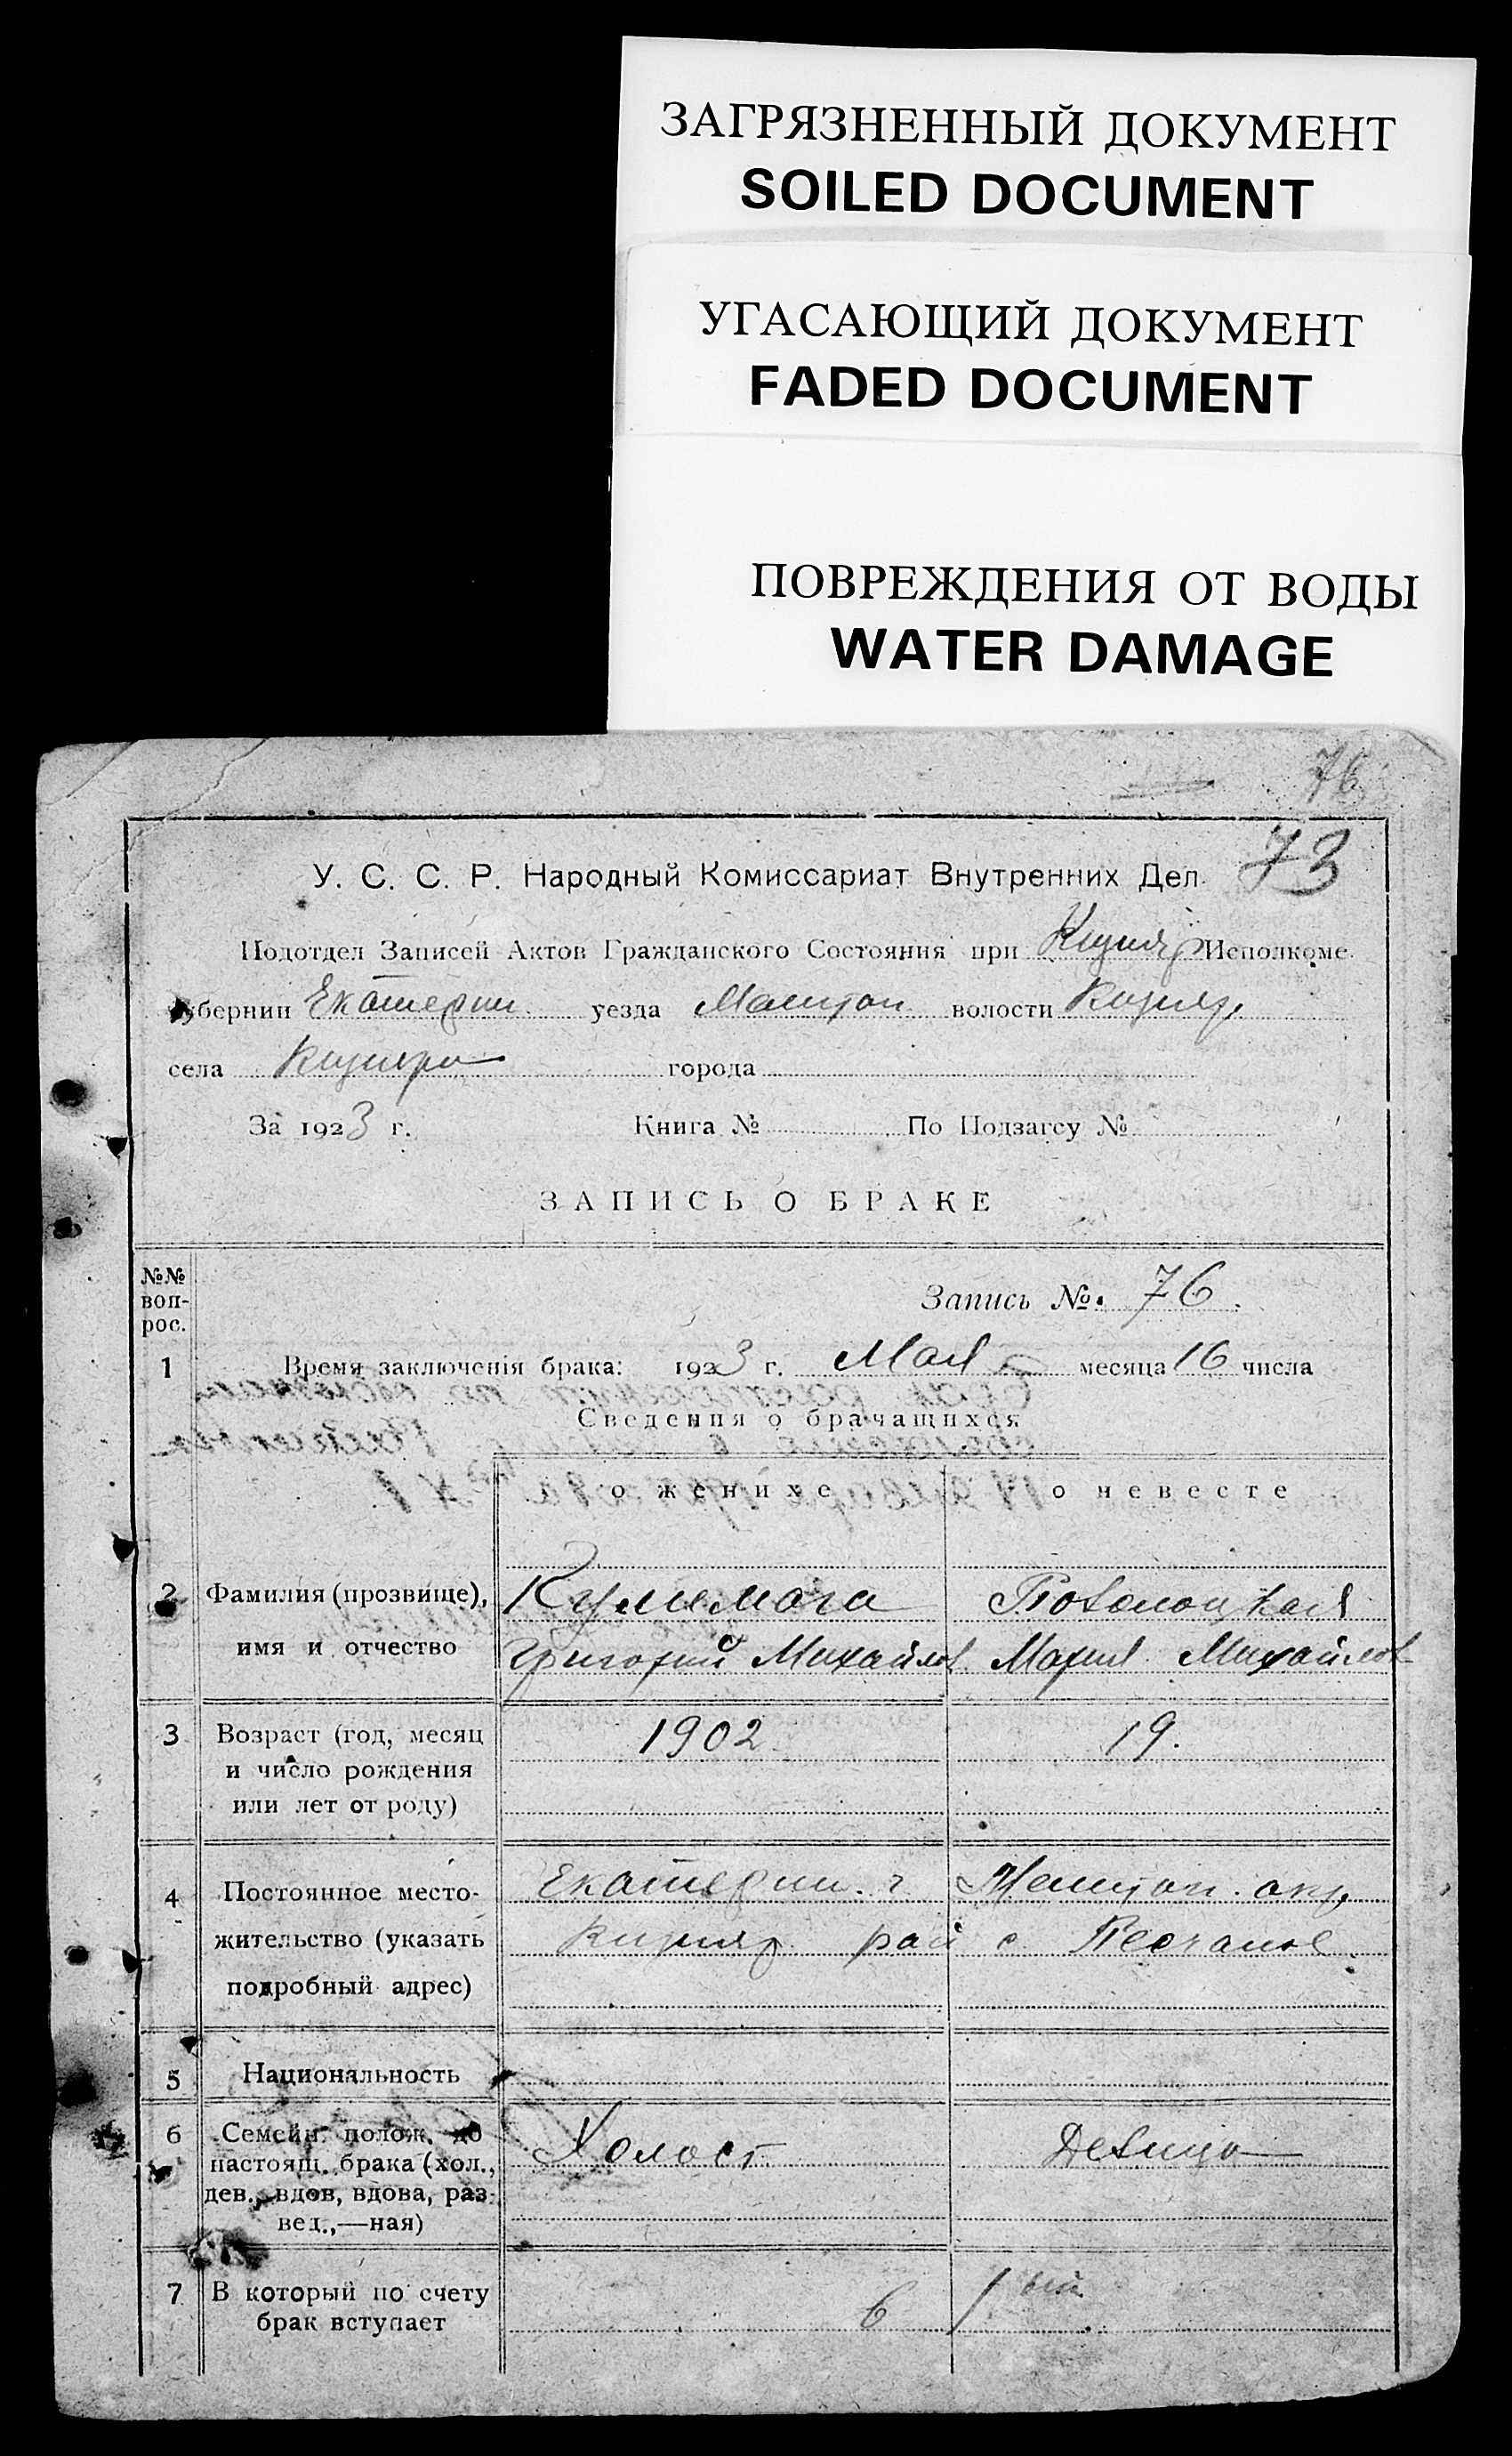 ЗАГРЯЗНЕННЫЙ ДОКУМЕНТ
SOILED DOCUMENT
УГАСАЮЩИЙ ДОКУМЕНТ
FADED DOCUMENT
ПОВРЕЖДЕНИЯ ОТ ВОДЫ
WATER DAMAGE
76
73
У. С. С. Р. Народный Комиссариат Внутренних Дел
Подотдел Записей Актов Гражданского Состояния при Кизияр Исполкоме
губернии Екатерин уезда Мелитоп волости Кизияр.
села Кизияра города
За 1923 г. Книга № По Подзагсу №
ЗАПИСЬ О БРАКЕ
№№ воп-рос.
Запись № 76.
1 Время заключенія брака: 1923 г. Мая месяца 16 числа
Сведения о брачащихся
о женихе о невесте
2 Фамилия (прозвище),
имя и отчество
Григорий Михайлов Мария Михайлов
3 Возраст (год, месяц
и число рождения
или лет от роду)
1902 19.
4 Постоянное место-
жительство (указать
подробный адрес)
Екатерин. г. Мелитоп. окр.
Кизияр рай с Песчаное
5 Национальность
6 Семейн. полож. до
настоящ. брака (хол.,
дев., вдов, вдова, раз-
вед.,—ная)
Холост Девица
7 В который по счету
брак вступает
в 1ый